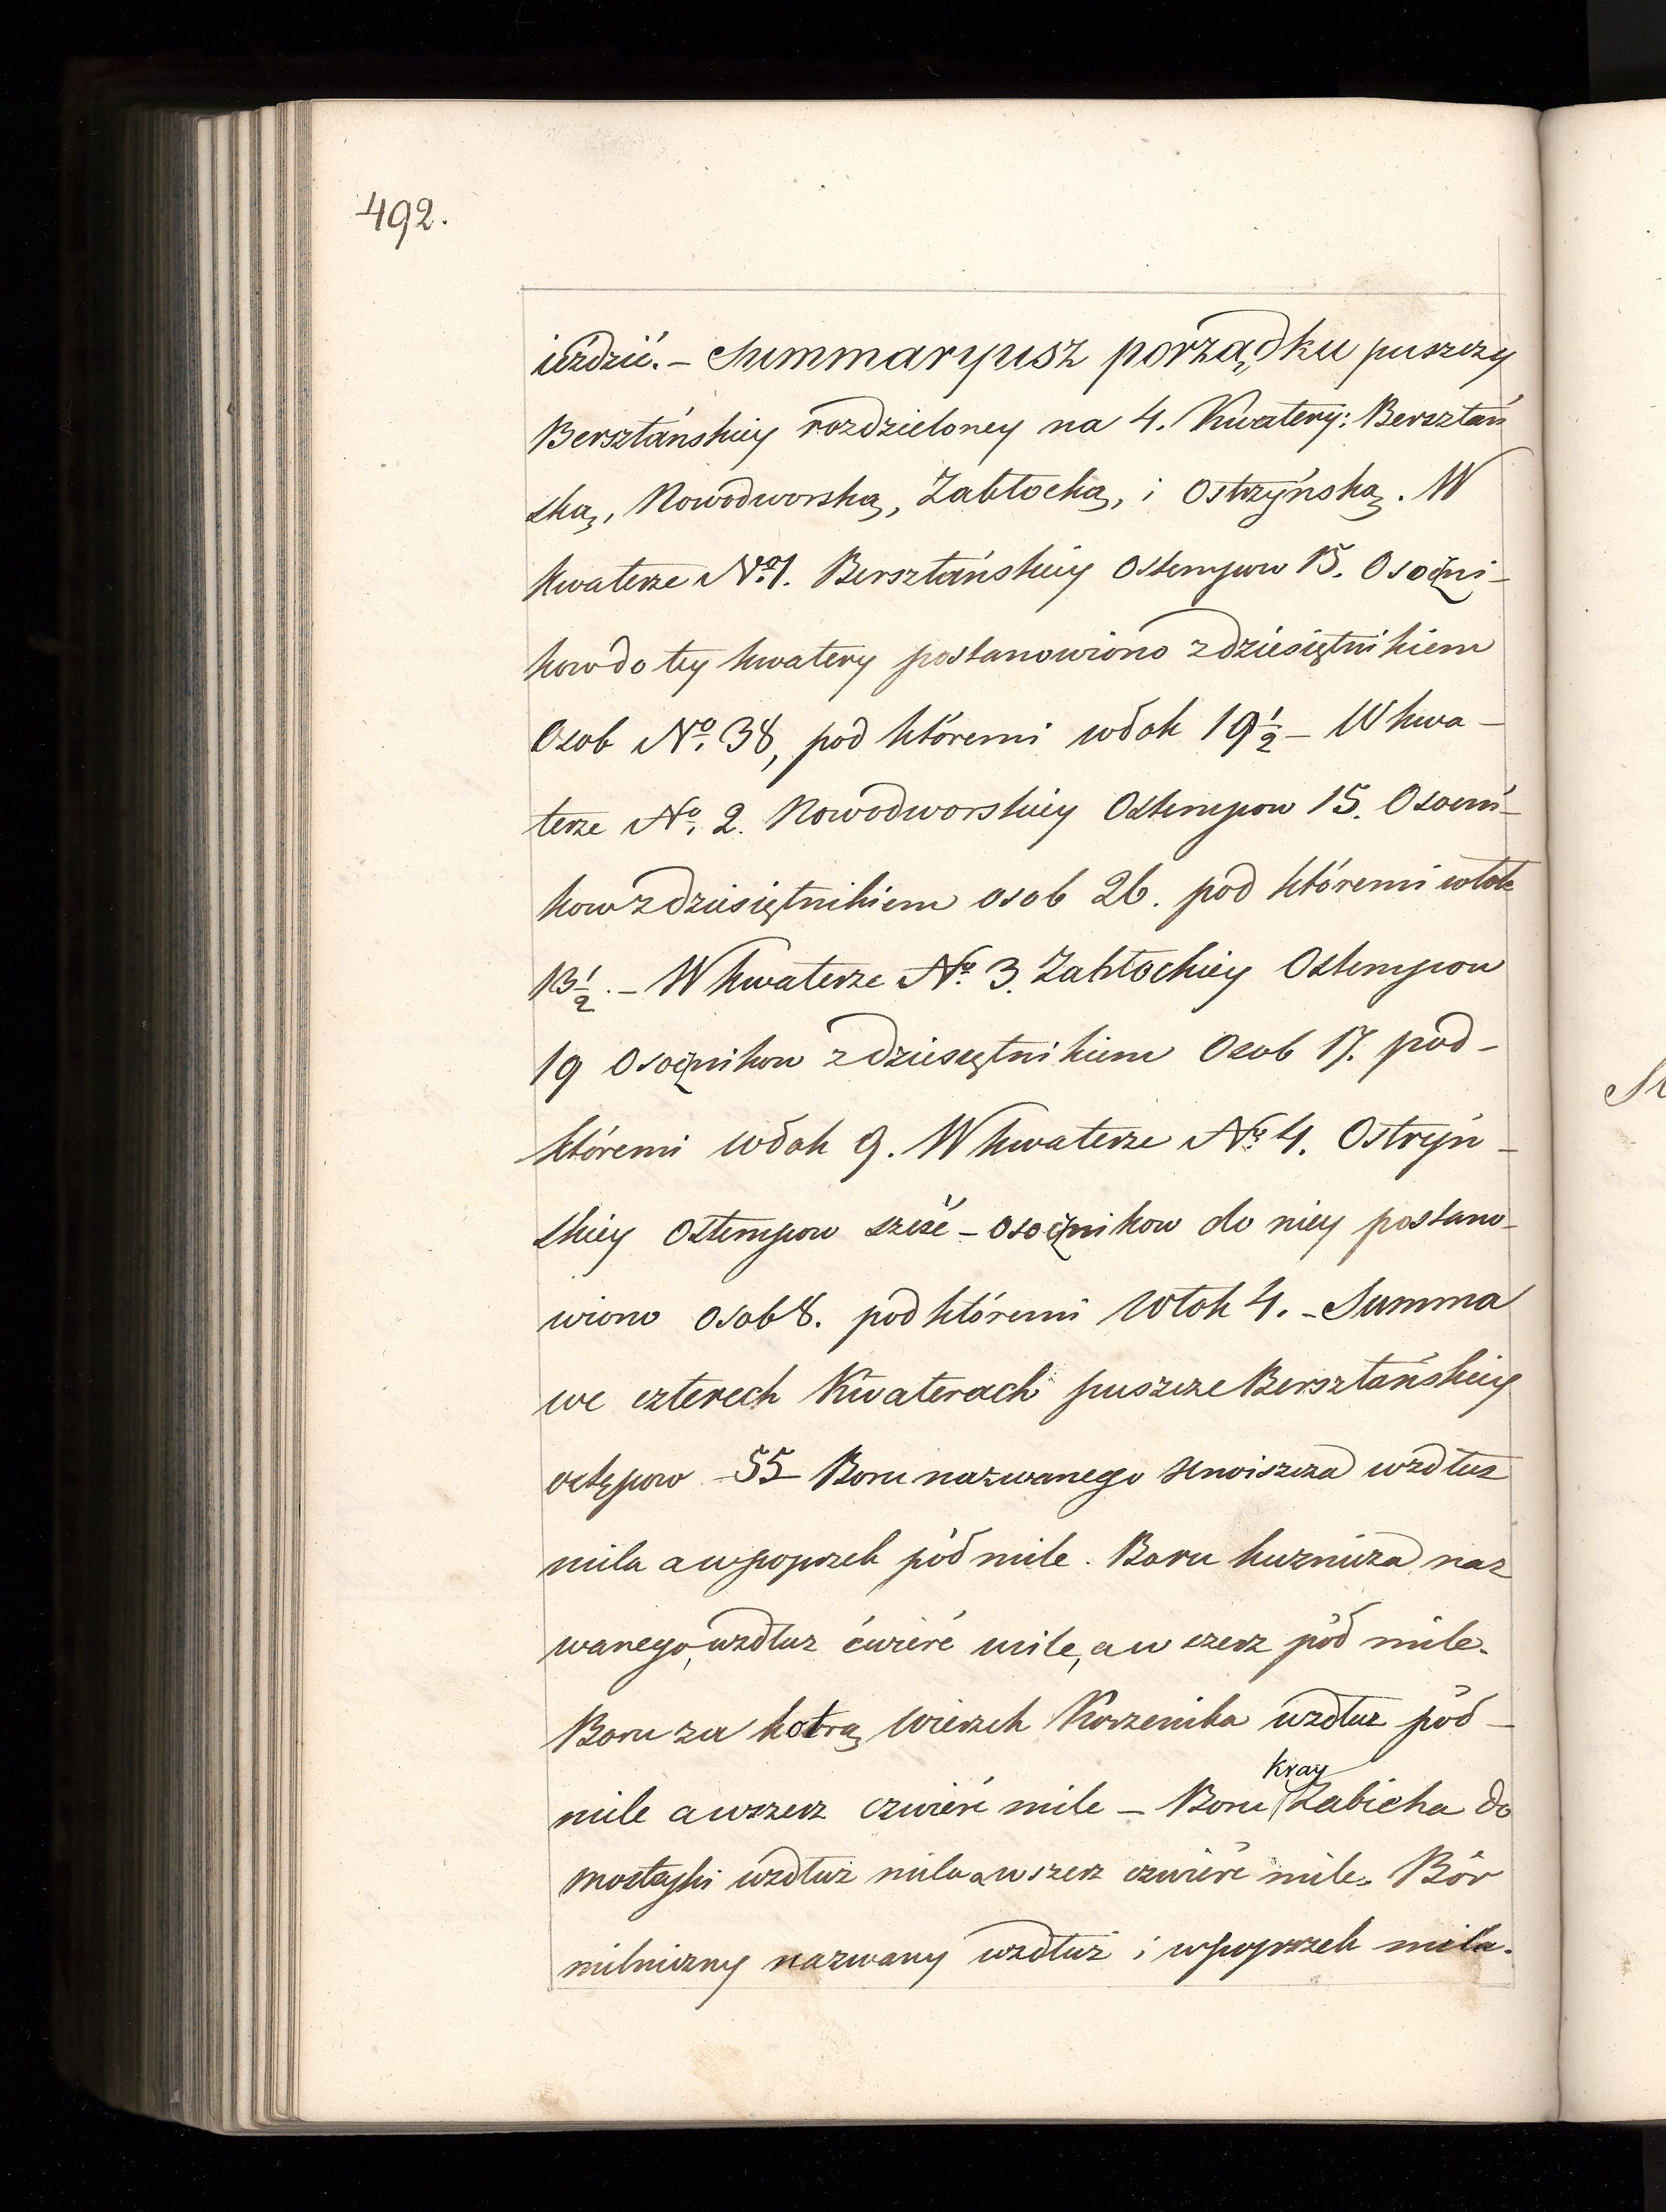 492.
ieździć. – Summaryusz porządku puszczy
Bersztańskiey rozdzieloney na 4. Kwatery: Bersztań
ską, Nowodworską, Zabłocką, i Ostrzyńską. W
kwaterze No. 1. Bersztańskiey Ostempow 15. Osoczni-
kow do tey kwatery postanowiono z dziesiętnikiem
Osob No. 38, pod któremi włok 19 1/2 – W kwa-
terze No. 2. Nowodworskiey Ostempow 15. Osocni-
kow z dziesiętnikiem osob 26. pod któremi włok
13 1/2. – W kwaterze No. 3. Zabłockiey Ostempow
19 Osocznikow z dziesiętnikiem Osob 17. pod-
któremi włok 9. W kwaterze No. 4. Ostryń-
skiey Ostempow sześć – osocznikow do niey postano-
wiono osob 8. pod któremi włok 4. – Summa
we czterech Kwaterach puszcze Bersztańskiey
ostępow 55 Boru nazwanego wzdłuz
mila a wpoprzek pół mile. Boru kuznicza naz
wanego, wzdluz ćwierć mile, a w szerz pół mile.
Boru za kotrą wierzch Korzenika wzdłuz pół –
mile a wszerz czwierć mile – Boru kray Zabicha do
wzdłuż mila a wszerz czwierć mile. Bór
milniczny nazwany wzdłuż i wpoprzek mila.